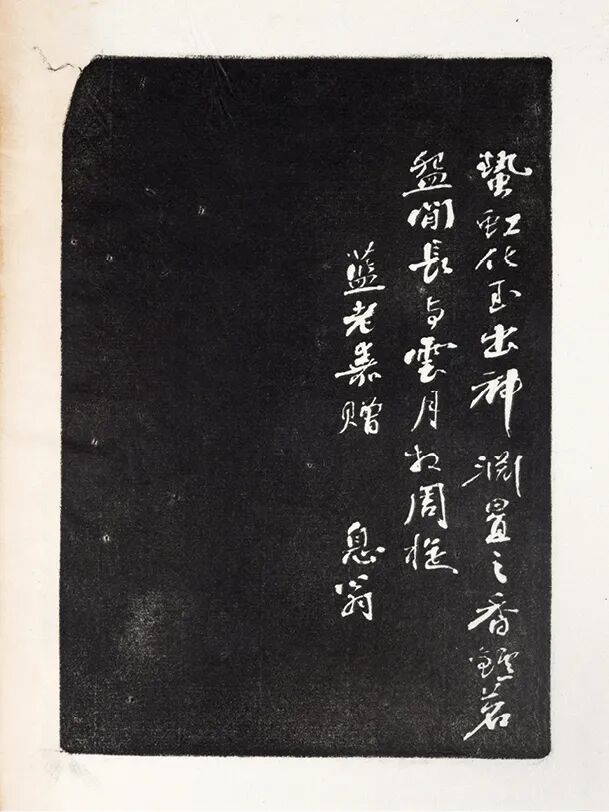 蟄虹化玉出神淵置之香鑪茗
盌閒長与雲月相周旋
藍老嘉贈 息翁